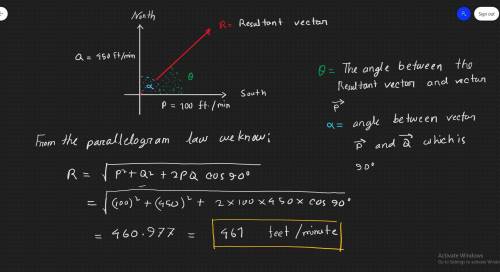 Sign out
North
R = Resultant vector
Q = 450 ft/min
θ
α
South
P = 100 ft./min
θ = The angle between the
Resultant vector and vector
P
α = angle between vector
P and Q which is
90°
From the parallelogram law we know;
R = √P² + Q² + 2PQ cos 90°
= √(100)² + (450)² + 2 × 100 × 450 × cos 90°
= 460.977 = 461 feet/minute
Activate Windows
Go to Settings to activate Windows.